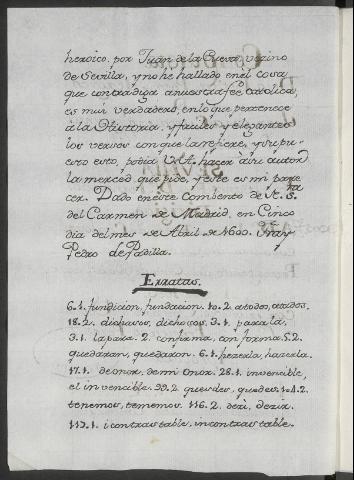 heroico. por Juan de la Cueva, vezino
de Sevilla, y no he hallado en él cosa
que contradiga a nuestra fee catolica,
es mui verdadero, en lo que pertenece
à la Historia, y faciles y elegantes
los versos con que la refiere, y supu-
esto esto, podia V.A. hacer à su autor
la merced que pide, y este es mi pare
cer. Dado en este Combento de N.ª S.ª
del Carmen de Madrid, en Cinco
dia del mes de Abril de 1600. Fray
Pedro de Padilla.
Erratas.
6.1. fundicion, fundacion. 10.2 atodos, atados.
18.2. dichavos, dichosos. 3.1. para la,
3.1. la para. 2. conforma, con forma. 5.2.
quedaran, quedaron. 6.1. hezerla, hazerla.
17.1. de onor, de mi onor. 28.1. invencible,
el invencible. 99.2. quesdes, quedes. 104.2.
tenemos, tememos. 116.2. dezi, dezir.
117.1. i contrastable. incontrastable.